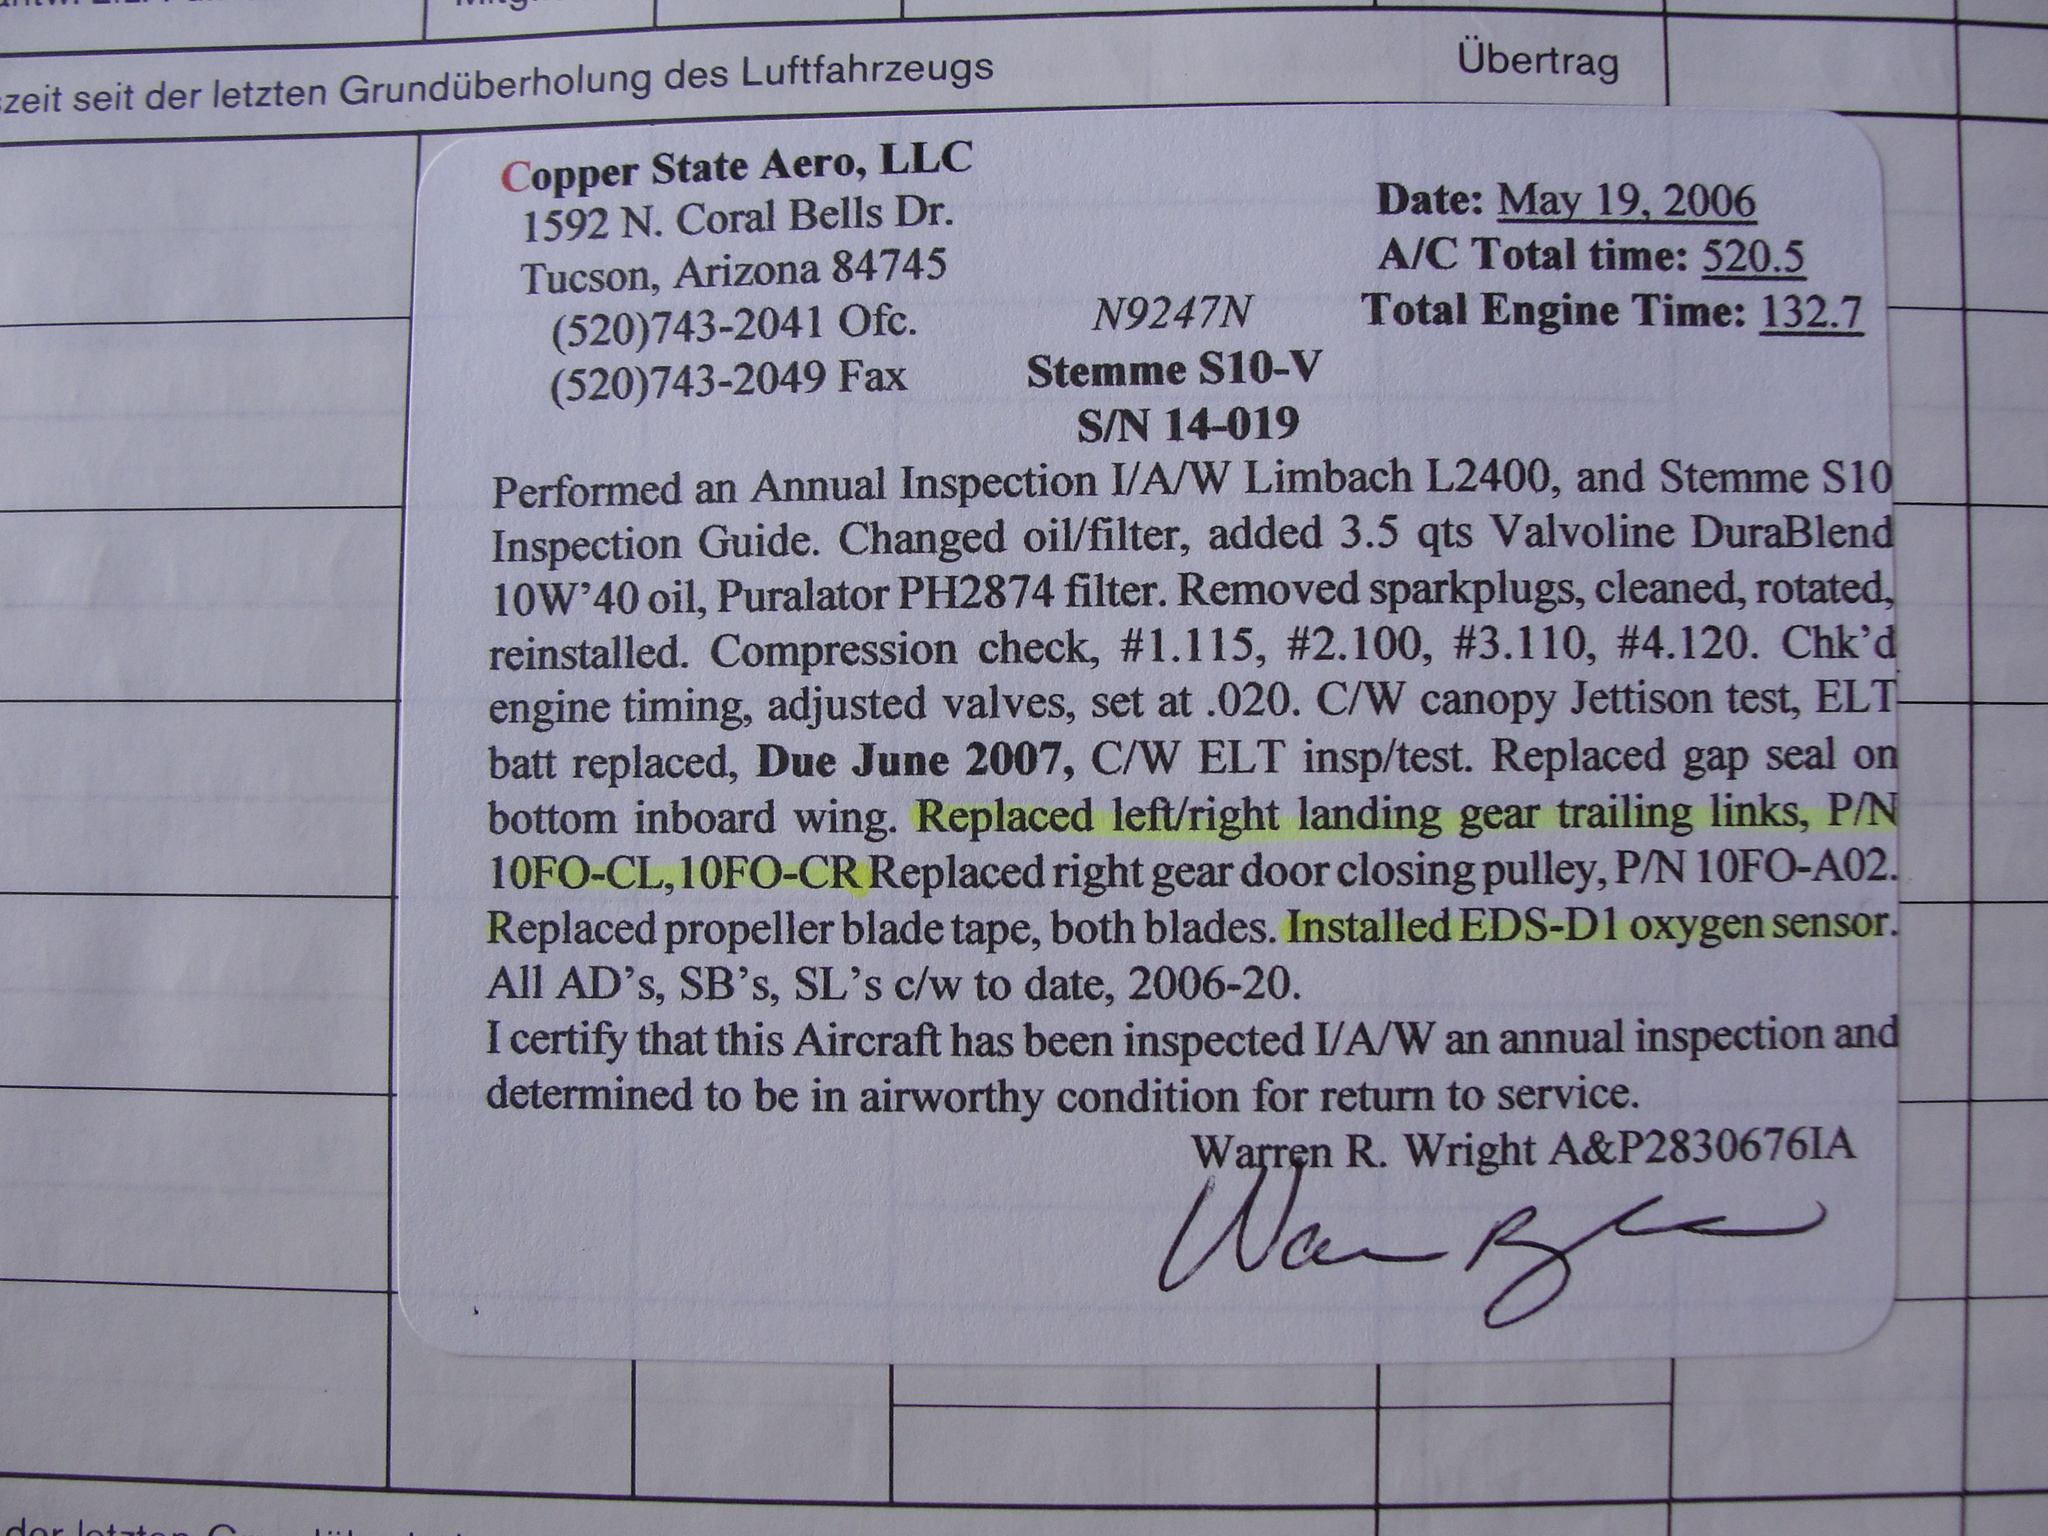 zeit seit der letzten Grundüberholung des Luftfahrzeugs Übertrag
Copper State Aero, LLC
1592 N. Coral Bells Dr.
Tucson, Arizona 84745
(520)743-2041 Ofc.
(520)743-2049 Fax
N9247N
Stemme S10-V
S/N 14-019
Date: May 19, 2006
A/C Total time: 520.5
Total Engine Time: 132.7
Performed an Annual Inspection I/A/W Limbach L2400, and Stemme S10
Inspection Guide. Changed oil/filter, added 3.5 qts Valvoline DuraBlend
10W'40 oil, Puralator PH2874 filter. Removed sparkplugs, cleaned, rotated,
reinstalled. Compression check, #1.115, #2.100, #3.110, #4.120. Chk'd
engine timing, adjusted valves, set at .020. C/W canopy Jettison test, ELT
batt replaced, Due June 2007, C/W ELT insp/test. Replaced gap seal on
bottom inboard wing. Replaced left/right landing gear trailing links, P/N
10FO-CL,10FO-CR Replaced right gear door closing pulley, P/N 10FO-A02.
Replaced propeller blade tape, both blades. Installed EDS-D1 oxygen sensor.
All AD's, SB's, SL's c/w to date, 2006-20.
I certify that this Aircraft has been inspected I/A/W an annual inspection and
determined to be in airworthy condition for return to service.
Warren R. Wright A&P2830676IA
der letzten